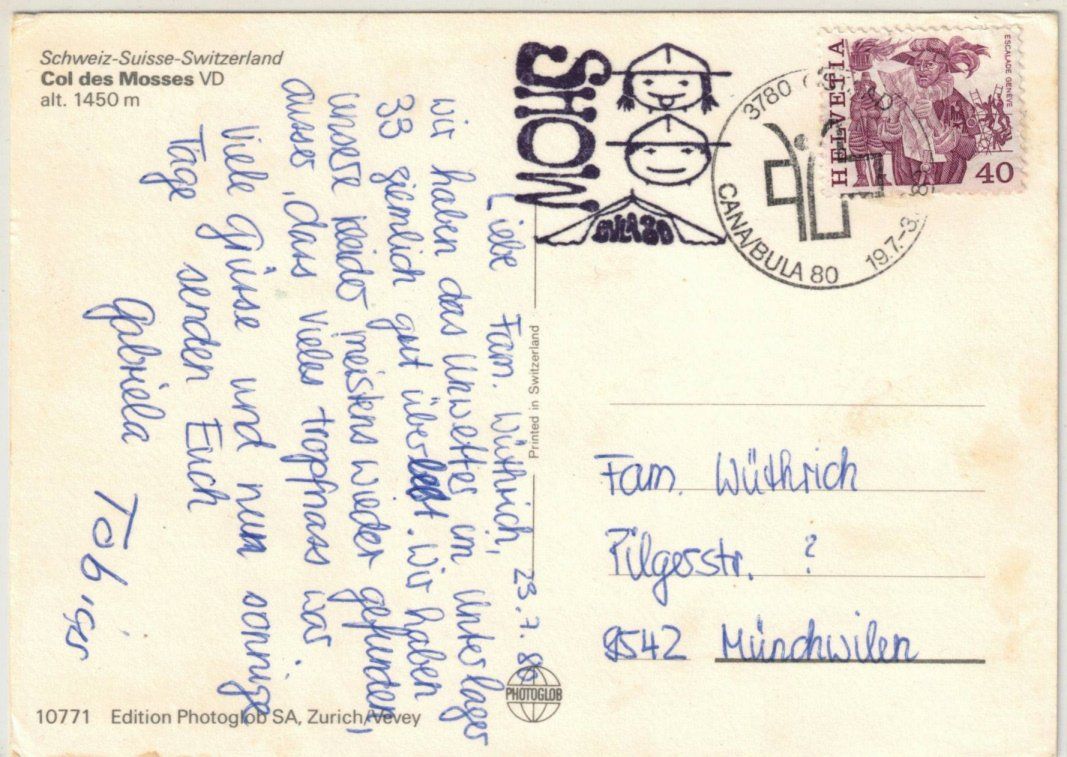 Schweiz-Suisse-Switzerland
Col des Mosses VD
alt. 1450 m
Liebe Fam. Wüthrich, 23.7.80
wir haben das Unwetter im Unterlager
33 ziemlich gut überlebt. Wir haben
unsere kleider meistens wieder gefunden,
ausser, dass vieles tropfnass war.
Viele Grüsse und nun sonnige
Tage senden Euch
Gabriela
10771 Edition Photoglob SA, Zurich/Vevey
Printed in Switzerland
PHOTOGLOB
SHOW
BULA80
3780
CANA/BULA 80
19.7.-3.
HELVETIA
ESCALADE GENÈVE
40
Fam. Wüthrich
Pilgerstr. ?
9542 Münchwilen